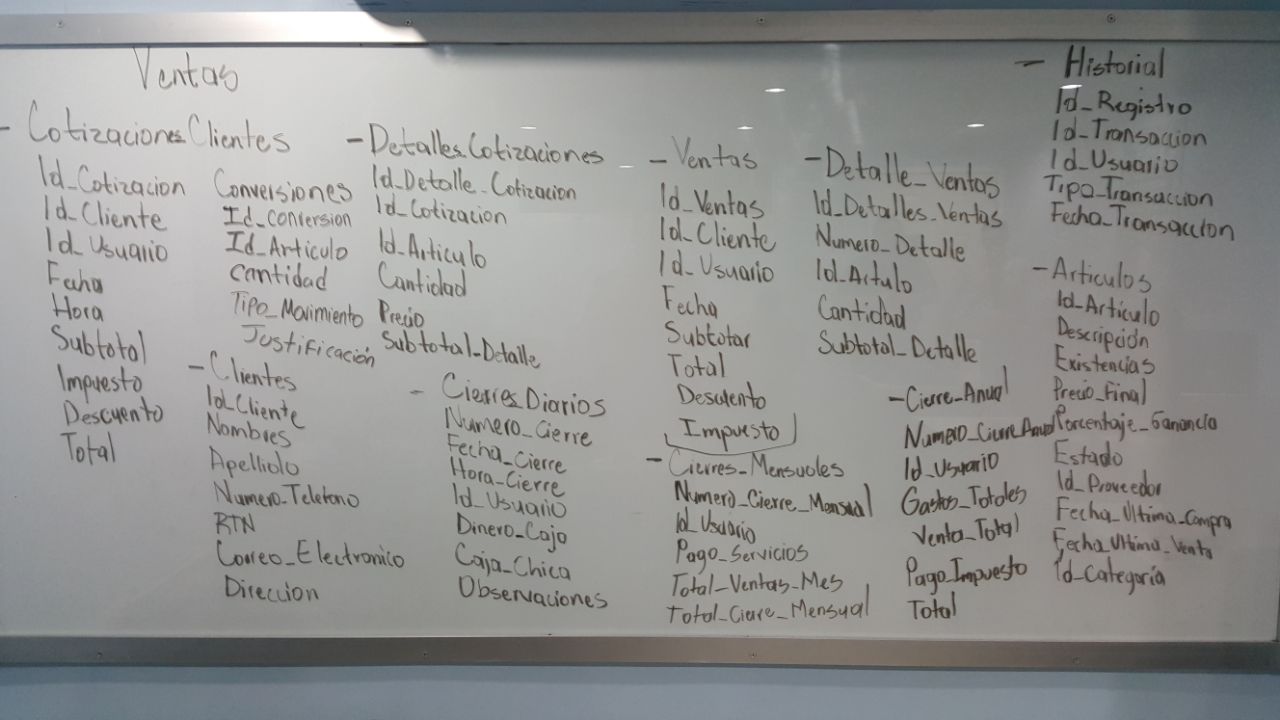 Ventas
- Cotizaciones Clientes
Id_Cotizacion
Id_Cliente
Id_Usuario
Fecha
Hora
Subtotal
Impuesto
Descuento
Total
Conversiones
Id_conversion
Id_Articulo
cantidad
Tipo_Movimiento
Justificación
- Clientes
Id_Cliente
Nombres
Apellido
Numero_Telefono
RTN
Correo_Electronico
Direccion
- Detalles Cotizaciones
Id_Detalle_Cotizacion
Id_Cotizacion
Id_Articulo
Cantidad
Precio
Subtotal_Detalle
- Cierres Diarios
Numero_Cierre
Fecha_Cierre
Hora_Cierre
Id_Usuario
Dinero_Caja
Caja_Chica
Observaciones
- Ventas
Id_Ventas
Id_Cliente
Id_Usuario
Fecha
Subtotar
Total
Descuento
Impuesto
- Cierres_Mensuales
Numero_Cierre_Mensual
Id_Usuario
Pago_Servicios
Total_Ventas_Mes
Total_Cierre_Mensual
- Detalle_Ventas
Id_Detalles_Ventas
Numero_Detalle
Id_Actulo
Cantidad
Subtotal_Detalle
- Cierre_Anual
Numero_Cierre_Anual
Id_Usuario
Gastos_Totales
Venta_Total
Pago_Impuesto
Total
- Historial
Id_Registro
Id_Transaccion
Id_Usuario
Tipo_Transaccion
Fecha_Transaccion
- Articulos
Id_Artículo
Descripción
Existencias
Precio_Final
Porcentaje_Ganancia
Estado
Id_Proveedor
Fecha_Ultima_Compra
Fecha_Ultima_Venta
Id_Categoría